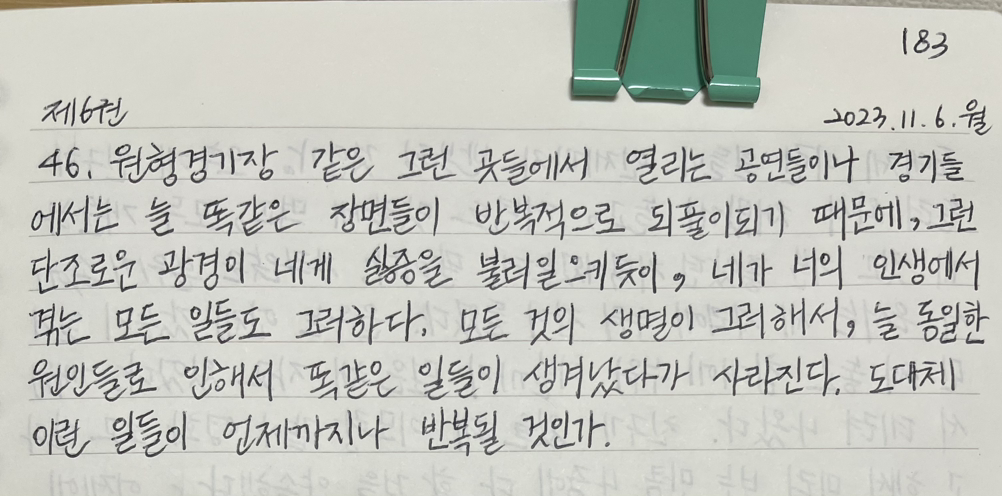 183
제6권 2023.11.6.월
46. 원형경기장 같은 그런 곳들에서 열리는 공연들이나 경기들
에서는 늘 똑같은 장면들이 반복적으로 되풀이되기 때문에, 그런
단조로운 광경이 네게 싫증을 불러일으키듯이, 네가 너의 인생에서
겪는 모든 일들도 그러하다. 모든 것의 생멸이 그러해서, 늘 동일한
원인들로 인해서 똑같은 일들이 생겨났다가 사라진다. 도대체
이런 일들이 언제까지나 반복될 것인가.